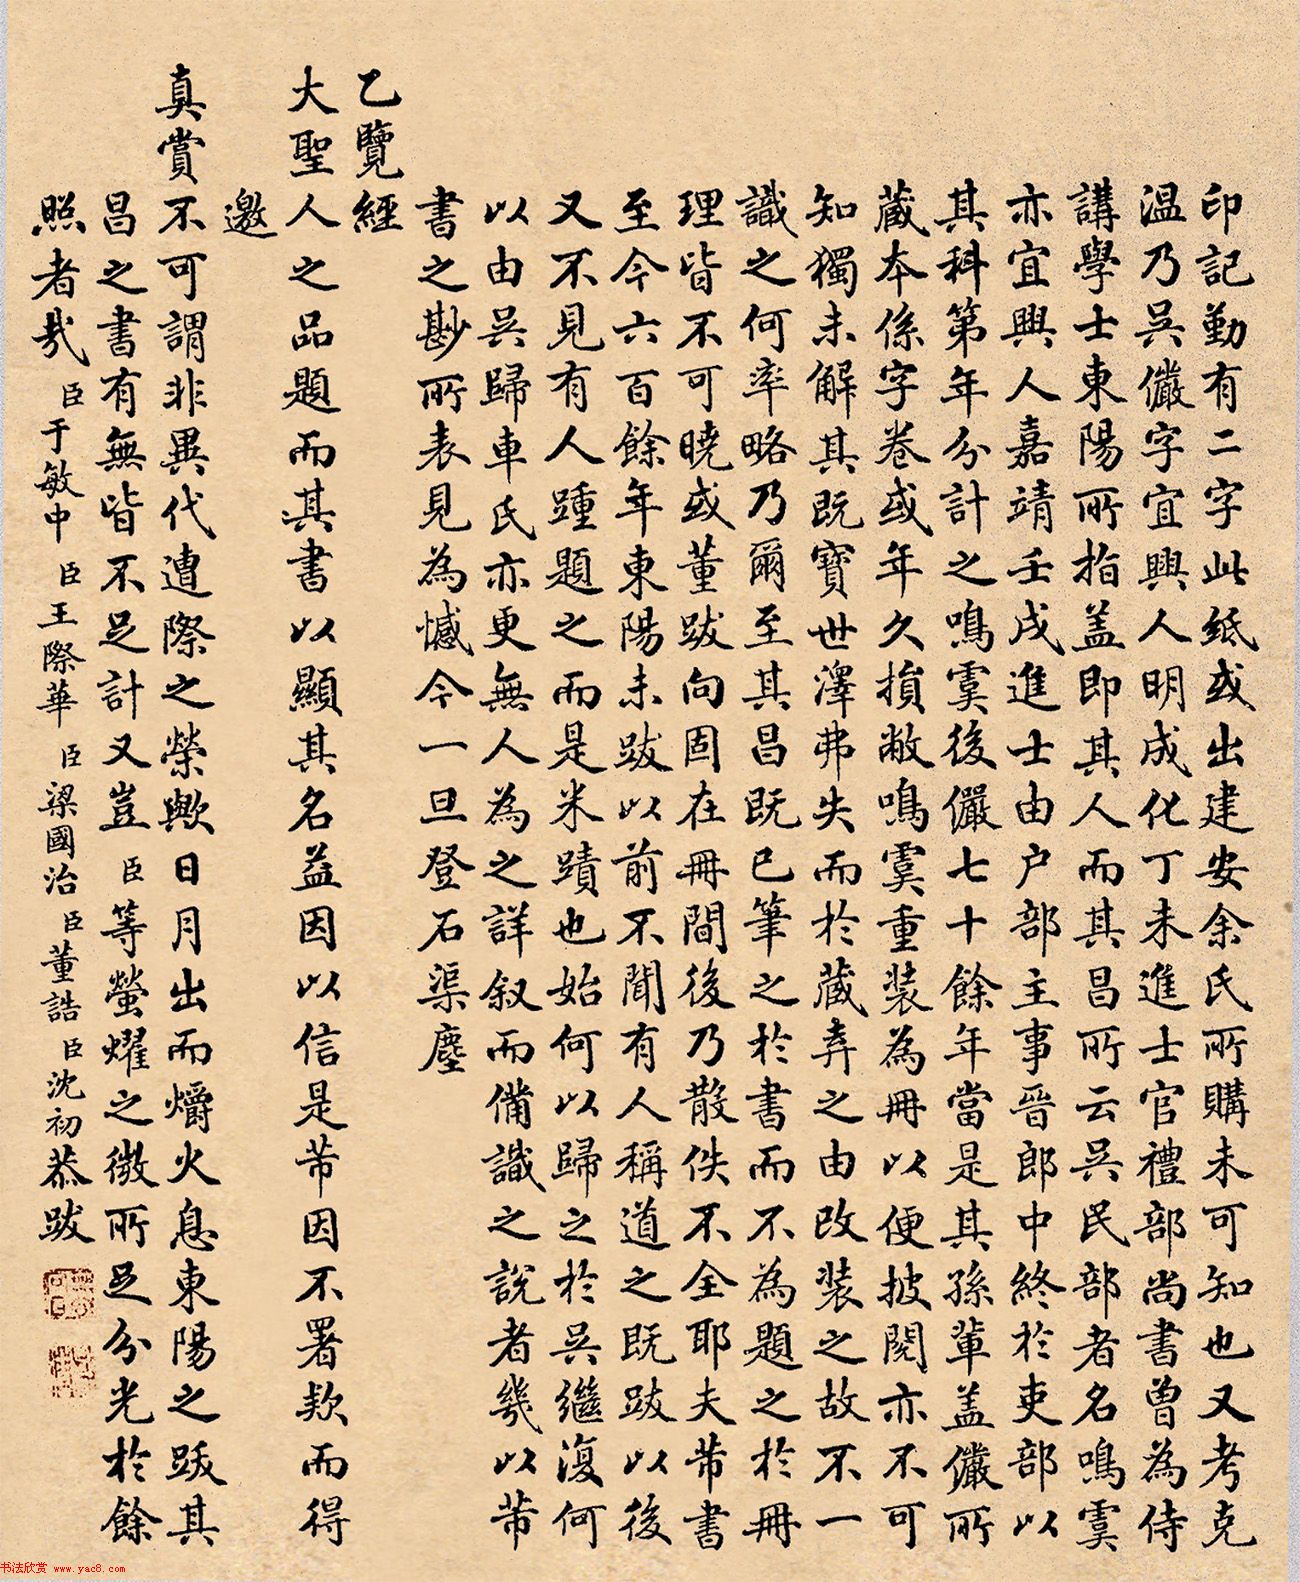 印記勤有二字此紙或出建安余氏所購未可知也又考克
溫乃吳儼字宜興人明成化丁未進士官禮部尚書曾為侍
講學士東陽所指盖即其人而其昌所云吳民部者名鳴虞
亦宜興人嘉靖壬戌進士由户部主事晉郎中終於吏部以
其科第年分計之鳴虞後儼七十餘年當是其孫輩盖儼所
藏本係字卷或年久損敝鳴虞重裝為冊以便披閱亦不可
知獨未解其既寶世澤弗失而於藏弆之由改裝之故不一
識之何率略乃爾至其昌既已筆之於書而不為題之於冊
理皆不可曉或董跋向固在冊間後乃散佚不全耶夫芾書
至今六百餘年東陽未跋以前不聞有人稱道之既跋以後
又不見有人踵題之而是米蹟也始何以歸之於吳繼復何
以由吳歸車氏亦更無人為之詳叙而備識之說者幾以芾
書之尠所表見為憾今一旦登石渠塵
乙覽經
大聖人之品題而其書以顯其名益因以信是芾因不署欵而得
邀
真賞不可謂非異代遭際之榮歟日月出而爝火息東陽之跋其
昌之書有無皆不足計又豈臣等螢燿之微所足分光於餘
照者哉臣于敏中臣王際華臣梁國治臣董誥臣沈初恭跋
书法欣赏 www.yac8.com